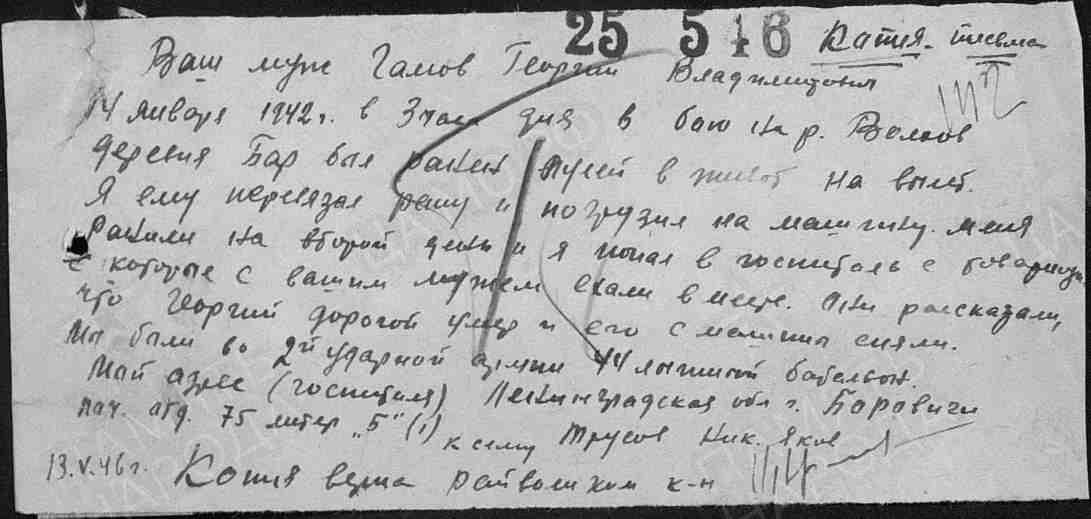 25 5 46 Копия письма
Ваш муж Гамов Георгий Владимирович
14 января 1942 г. в 3 часа дня в бою на р. Волхов
деревня Бор был ранен пулей в живот на вылет.
Я ему перевязал рану и погрузил на машину. меня
ранили на второй день и я попал в госпиталь с товарищами
которые с вашим мужем ехали вместе. Они рассказали,
что Георгий дорогой умер и его с машины сняли.
Мы были во 2й ударной армии 44 лыжный батальон.
Мой адрес (госпиталя) Ленинградская обл г. Боровичи
поч. отд. 75 литер „Б" (1) к сему Трусов Ник. Яков
13.V.46 г. Копия верна райвоенком к-н